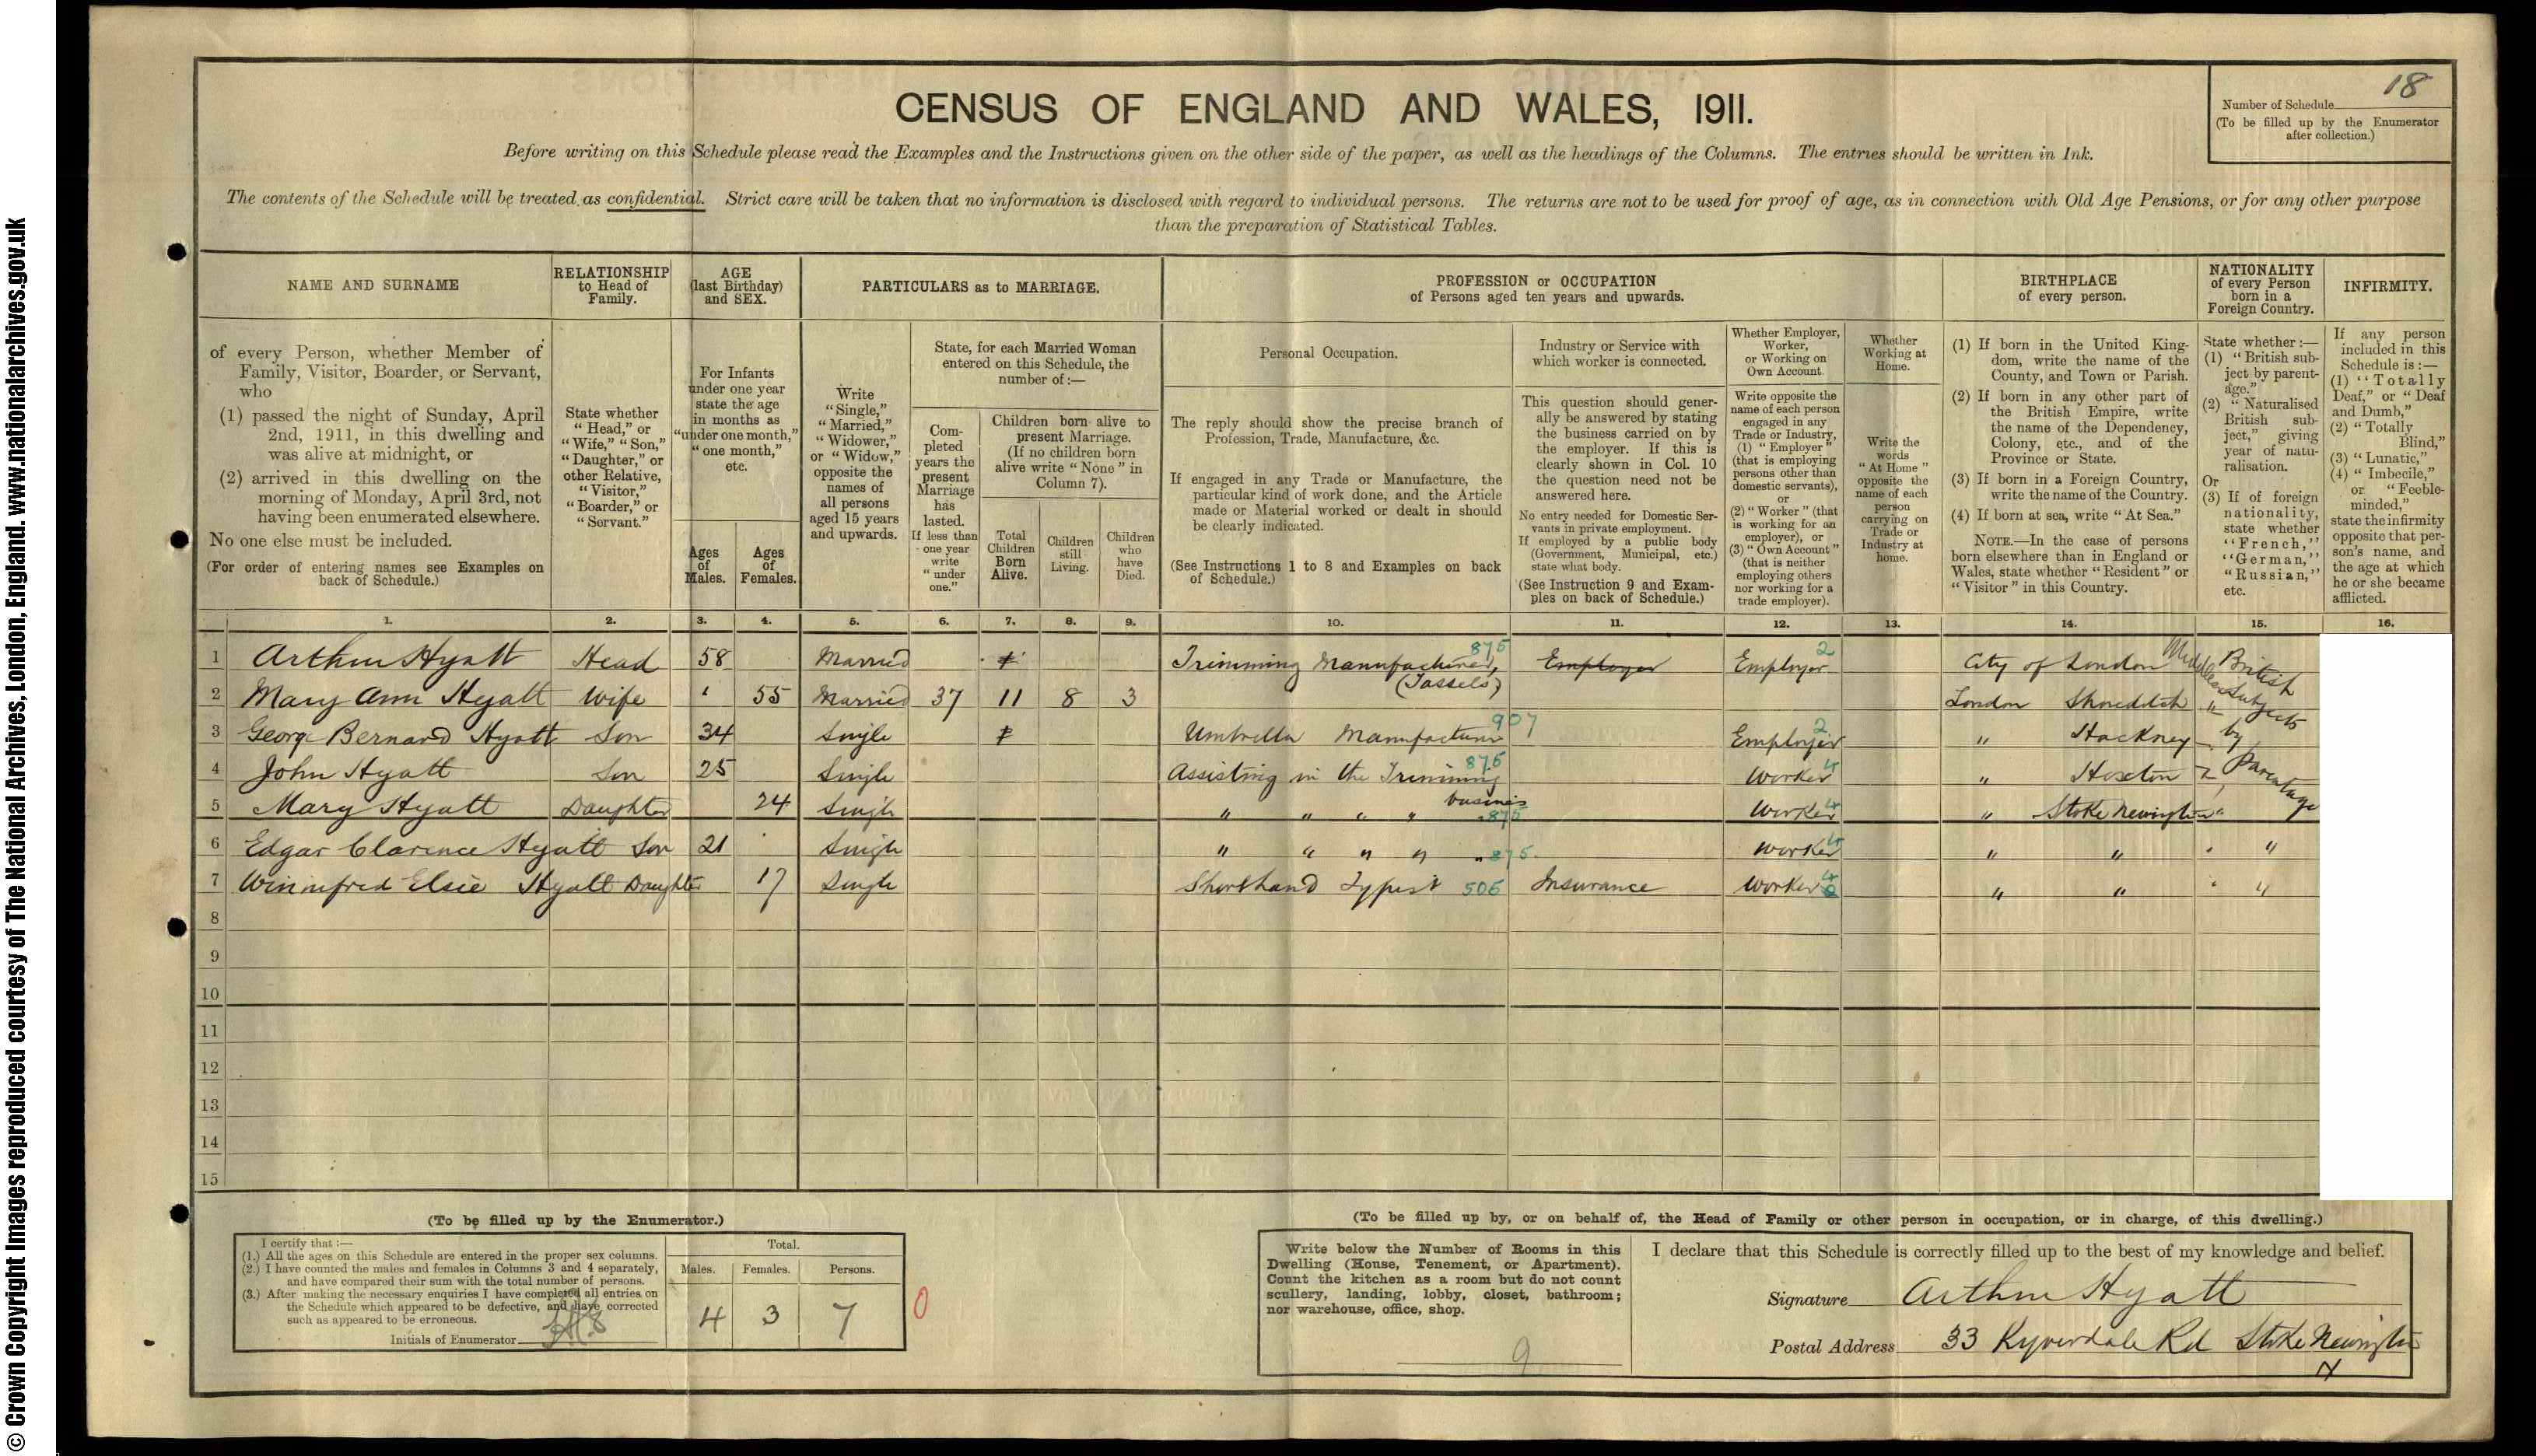 © Crown Copyright Images reproduced courtesy of The National Archives, London, England. www.nationalarchives.gov.uk
CENSUS OF ENGLAND AND WALES, 1911.
Number of Schedule 18
(To be filled up by the Enumerator
after collection.)
Before writing on this Schedule please read the Examples and the Instructions given on the other side of the paper, as well as the headings of the Columns. The entries should be written in Ink.
The contents of the Schedule will be treated as confidential. Strict care will be taken that no information is disclosed with regard to individual persons. The returns are not to be used for proof of age, as in connection with Old Age Pensions, or for any other purpose
than the preparation of Statistical Tables.
NAME AND SURNAME
RELATIONSHIP
to Head of
Family.
AGE
(last Birthday)
and SEX.
PARTICULARS as to MARRIAGE.
PROFESSION or OCCUPATION
of Persons aged ten years and upwards.
BIRTHPLACE
of every person.
NATIONALITY
of every Person
born in a
Foreign Country.
INFIRMITY.
of every Person, whether Member of
Family, Visitor, Boarder, or Servant,
who
(1) passed the night of Sunday, April
2nd, 1911, in this dwelling and
was alive at midnight, or
(2) arrived in this dwelling on the
morning of Monday, April 3rd, not
having been enumerated elsewhere.
No one else must be included.
(For order of entering names see Examples on
back of Schedule.)
State whether
"Head," or
"Wife," "Son,"
"Daughter," or
other Relative,
"Visitor,"
"Boarder," or
"Servant."
For Infants
under one year
state the age
in months as
"under one month,"
"one month,"
etc.
Ages
of
Males.
Ages
of
Females.
Write
"Single,"
"Married,"
"Widower,"
or "Widow,"
opposite the
names of
all persons
aged 15 years
and upwards.
State, for each Married Woman
entered on this Schedule, the
number of:—
Com-
pleted
years the
present
Marriage
has
lasted.
If less than
one year
write
"under
one."
Children born alive to
present Marriage.
(If no children born
alive write "None" in
Column 7).
Total
Children
Born
Alive.
Children
still
Living.
Children
who
have
Died.
Personal Occupation.
The reply should show the precise branch of
Profession, Trade, Manufacture, &c.
If engaged in any Trade or Manufacture, the
particular kind of work done, and the Article
made or Material worked or dealt in should
be clearly indicated.
(See Instructions 1 to 8 and Examples on back
of Schedule.)
Industry or Service with
which worker is connected.
This question should gener-
ally be answered by stating
the business carried on by
the employer. If this is
clearly shown in Col. 10
the question need not be
answered here.
No entry needed for Domestic Ser-
vants in private employment.
If employed by a public body
(Government, Municipal, etc.)
state what body.
(See Instruction 9 and Exam-
ples on back of Schedule.)
Whether Employer,
Worker,
or Working on
Own Account.
Write opposite the
name of each person
engaged in any
Trade or Industry,
(1) "Employer"
(that is employing
persons other than
domestic servants),
or
(2) "Worker" (that
is working for an
employer), or
(3) "Own Account"
(that is neither
employing others
nor working for a
trade employer).
Whether
Working at
Home.
Write the
words
"At Home"
opposite the
name of each
person
carrying on
Trade or
Industry at
home.
(1) If born in the United King-
dom, write the name of the
County, and Town or Parish.
(2) If born in any other part of
the British Empire, write
the name of the Dependency,
Colony, etc., and of the
Province or State.
(3) If born in a Foreign Country,
write the name of the Country.
(4) If born at sea, write "At Sea."
NOTE.—In the case of persons
born elsewhere than in England or
Wales, state whether "Resident" or
"Visitor" in this Country.
State whether:—
(1) "British sub-
ject by parent-
age."
(2) "Naturalised
British sub-
ject," giving
year of natu-
ralisation.
Or
(3) If of foreign
nationality,
state whether
"French,"
"German,"
"Russian,"
etc.
If any person
included in this
Schedule is:—
(1) "Totally
Deaf," or "Deaf
and Dumb,"
(2) "Totally
Blind,"
(3) "Lunatic,"
(4) "Imbecile,"
or "Feeble-
minded,"
state the infirmity
opposite that per-
son's name, and
the age at which
he or she became
afflicted.
1. 2. 3. 4. 5. 6. 7. 8. 9. 10. 11. 12. 13. 14. 15. 16.
1 Arthur Hyatt Head 58 Married Trimming Manufacturer, 875 Employer Employer 2 City of London British
(Tassels)
2 Mary Ann Hyatt Wife 55 Married 37 11 8 3 London Shoreditch " Subjects
3 George Bernard Hyatt Son 34 Single Umbrella Manufacturer 907 Employer 2 " Hackney by
4 John Hyatt Son 25 Single Assisting in the Trimming 875 Worker 4 " Hoxton Parentage
business
5 Mary Hyatt Daughter 24 Single " " " " 875 Worker 4 " Stoke Newington "
6 Edgar Clarence Hyatt Son 21 Single " " " " " 875 Worker 4 " " "
7 Winnifred Elsie Hyatt Daughter 17 Single Shorthand Typist 506 Insurance Worker 4 " " "
8
9
10
11
12
13
14
15
(To be filled up by the Enumerator.)
I certify that:—
(1.) All the ages on this Schedule are entered in the proper sex columns.
(2.) I have counted the males and females in Columns 3 and 4 separately,
and have compared their sum with the total number of persons.
(3.) After making the necessary enquiries I have completed all entries on
the Schedule which appeared to be defective, and have corrected
such as appeared to be erroneous.
Initials of Enumerator
Total.
Males. Females. Persons.
4 3 7
0
(To be filled up by, or on behalf of, the Head of Family or other person in occupation, or in charge, of this dwelling.)
Write below the Number of Rooms in this
Dwelling (House, Tenement, or Apartment).
Count the kitchen as a room but do not count
scullery, landing, lobby, closet, bathroom;
nor warehouse, office, shop.
9
I declare that this Schedule is correctly filled up to the best of my knowledge and belief.
Signature Arthur Hyatt
Postal Address 33 Kyverdale Rd Stoke Newington